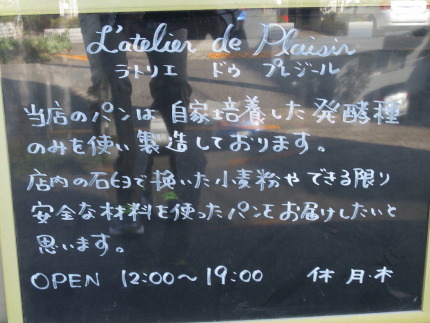 L'atelier de Plaisir
ラトリエ ドゥ プレジール
当店のパンは自家培養した発酵種
のみを使い製造しております。
店内の石臼で挽いた小麦粉やできる限り
安全な材料を使ったパンをお届けしたいと
思います。
OPEN 12:00〜19:00 休 月・木